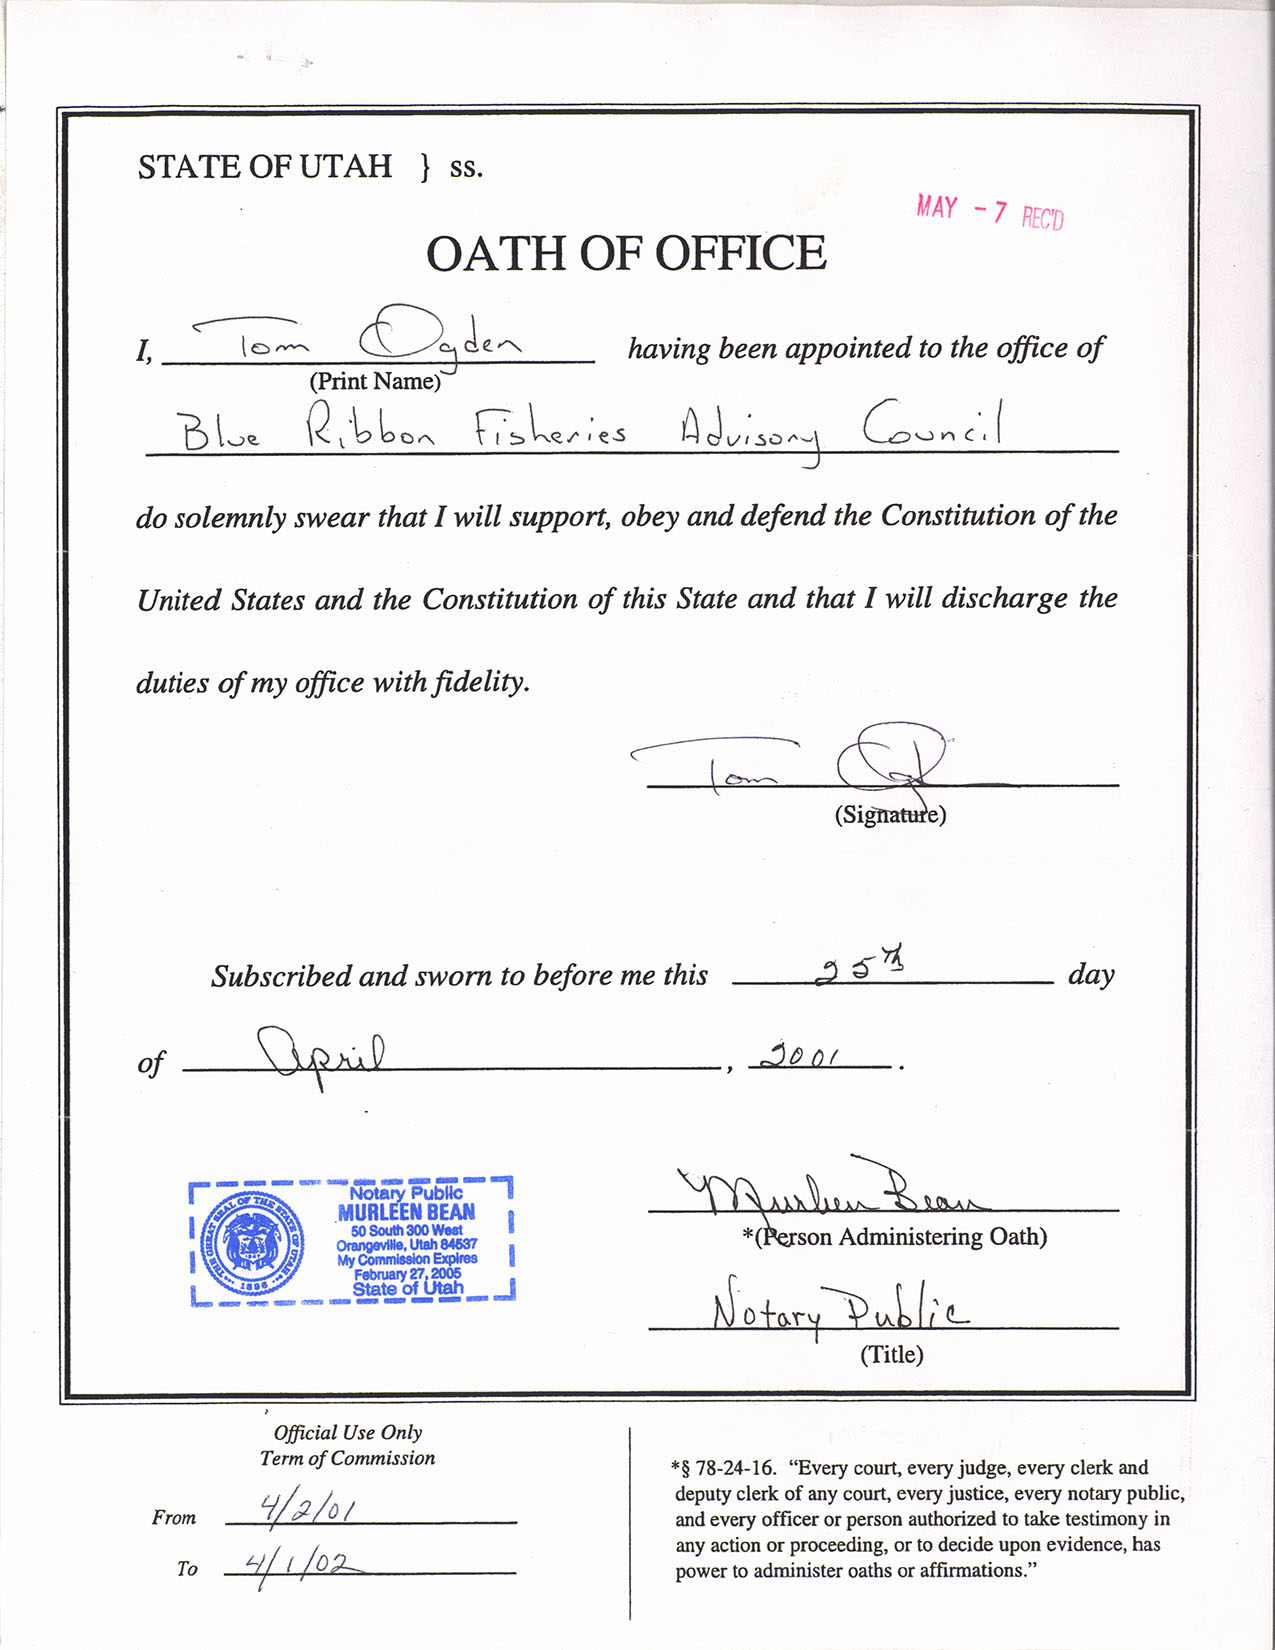 STATE OF UTAH } ss.
MAY - 7 REC'D
OATH OF OFFICE
I, Tom Ogden having been appointed to the office of
(Print Name)
Blue Ribbon Fisheries Advisory Council
do solemnly swear that I will support, obey and defend the Constitution of the
United States and the Constitution of this State and that I will discharge the
duties of my office with fidelity.
Tom Og
(Signature)
Subscribed and sworn to before me this 25th day
of April, 2001.
THE GREAT SEAL OF THE STATE OF UTAH
1896
Notary Public
MURLEEN BEAN
50 South 300 West
Orangeville, Utah 84537
My Commission Expires
February 27, 2005
State of Utah
Murleen Bean
*(Person Administering Oath)
Notary Public
(Title)
Official Use Only
Term of Commission
From 4/2/01
To 4/1/02
*§ 78-24-16. “Every court, every judge, every clerk and
deputy clerk of any court, every justice, every notary public,
and every officer or person authorized to take testimony in
any action or proceeding, or to decide upon evidence, has
power to administer oaths or affirmations.”